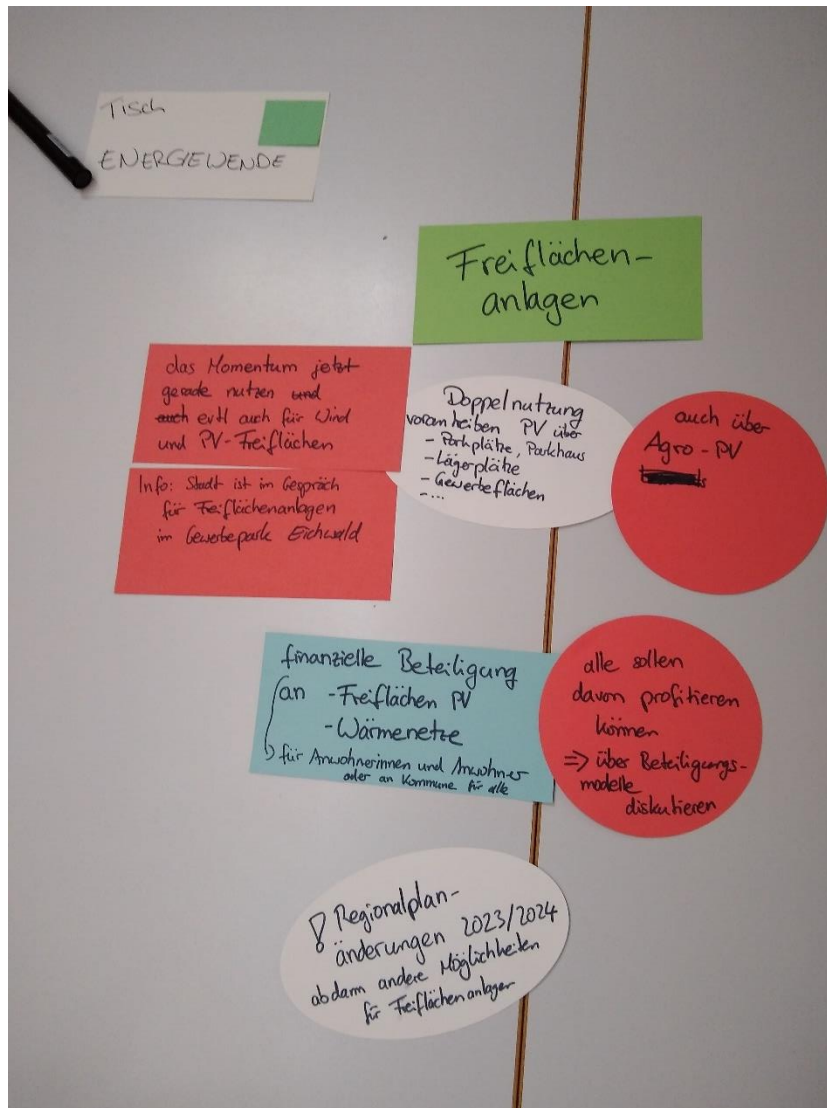 Tisch
ENERGIEWENDE
Freiflächen-
anlagen
das Momentum jetzt
gerade nutzen und
auch evtl auch für Wind
und PV-Freiflächen
Info: Stadt ist im Gespräch
für Freiflächenanlagen
im Gewerbepark Eichwald
Doppelnutzung
vorantreiben PV über
- Parkplätze, Parkhaus
- Lagerplätze
- Gewerbeflächen
- ...
auch über
Agro-PV
finanzielle Beteiligung
an - Freiflächen PV
- Wärmenetze
↳ für Anwohnerinnen und Anwohner
oder an Kommune für alle
alle sollen
davon profitieren
können
=> über Beteiligungs-
modelle
diskutieren
! Regionalplan-
änderungen 2023/2024
ab dann andere Möglichkeiten
für Freiflächenanlagen